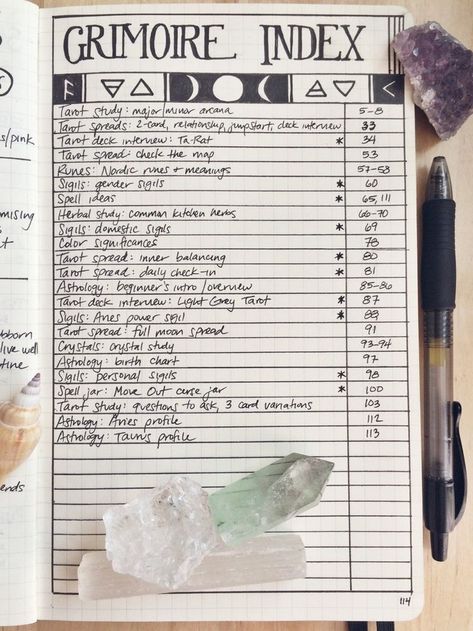 GRIMOIRE INDEX
Tarot study: major/minor arcana 5-8
Tarot spreads: 2-card, relationship, jumpstart, deck interview 33
Tarot deck interview: Ta-Rat * 34
Tarot spread: check the map 53
Runes: Nordic runes & meanings 57-58
Sigils: gender sigils * 60
Spell ideas * 65, 111
Herbal study: common kitchen herbs 66-70
Sigils: domestic sigils * 69
Color significances 78
Tarot spread: inner balancing * 80
Tarot spread: daily check-in * 81
Astrology: beginner's intro/overview 85-86
Tarot deck interview: Light Grey Tarot * 87
Sigils: Aries power sigil * 88
Tarot spread: full moon spread 91
Crystals: crystal study 93-94
Astrology: birth chart 97
Sigils: personal sigils * 98
Spell jar: Move Out curse jar * 100
Tarot study: questions to ask, 3 card variations 103
Astrology: Aries profile 112
Astrology: Taurus profile 113
114
s/pink
mising
live well
ends